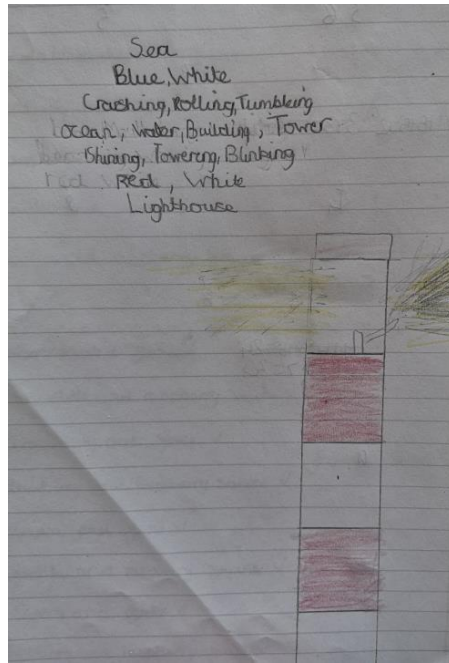 Sea
Blue, White
Crashing, Rolling, Tumbling
Ocean, Water, Building, Tower
Shining, Towering, Blinking
Red, White
Lighthouse